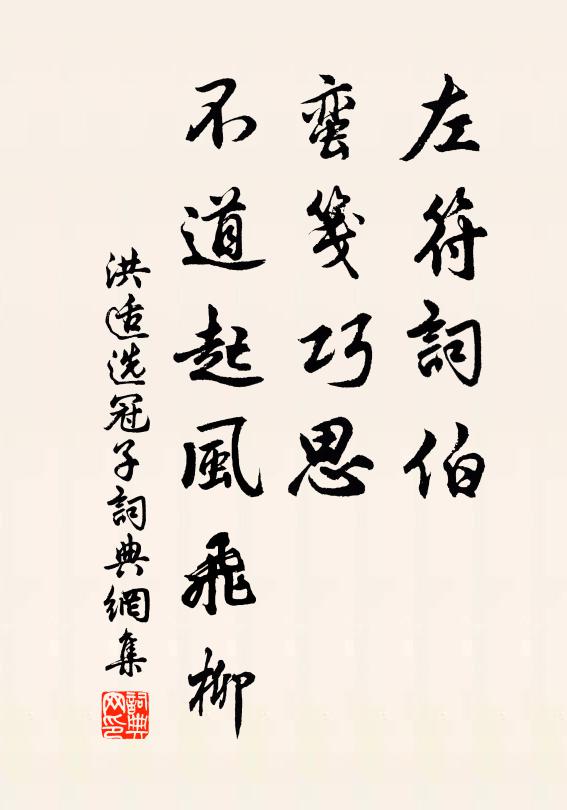 左符詞伯
蛮箋巧思
不道起風飛柳
洪适选冠子詞典網集
詞典网印